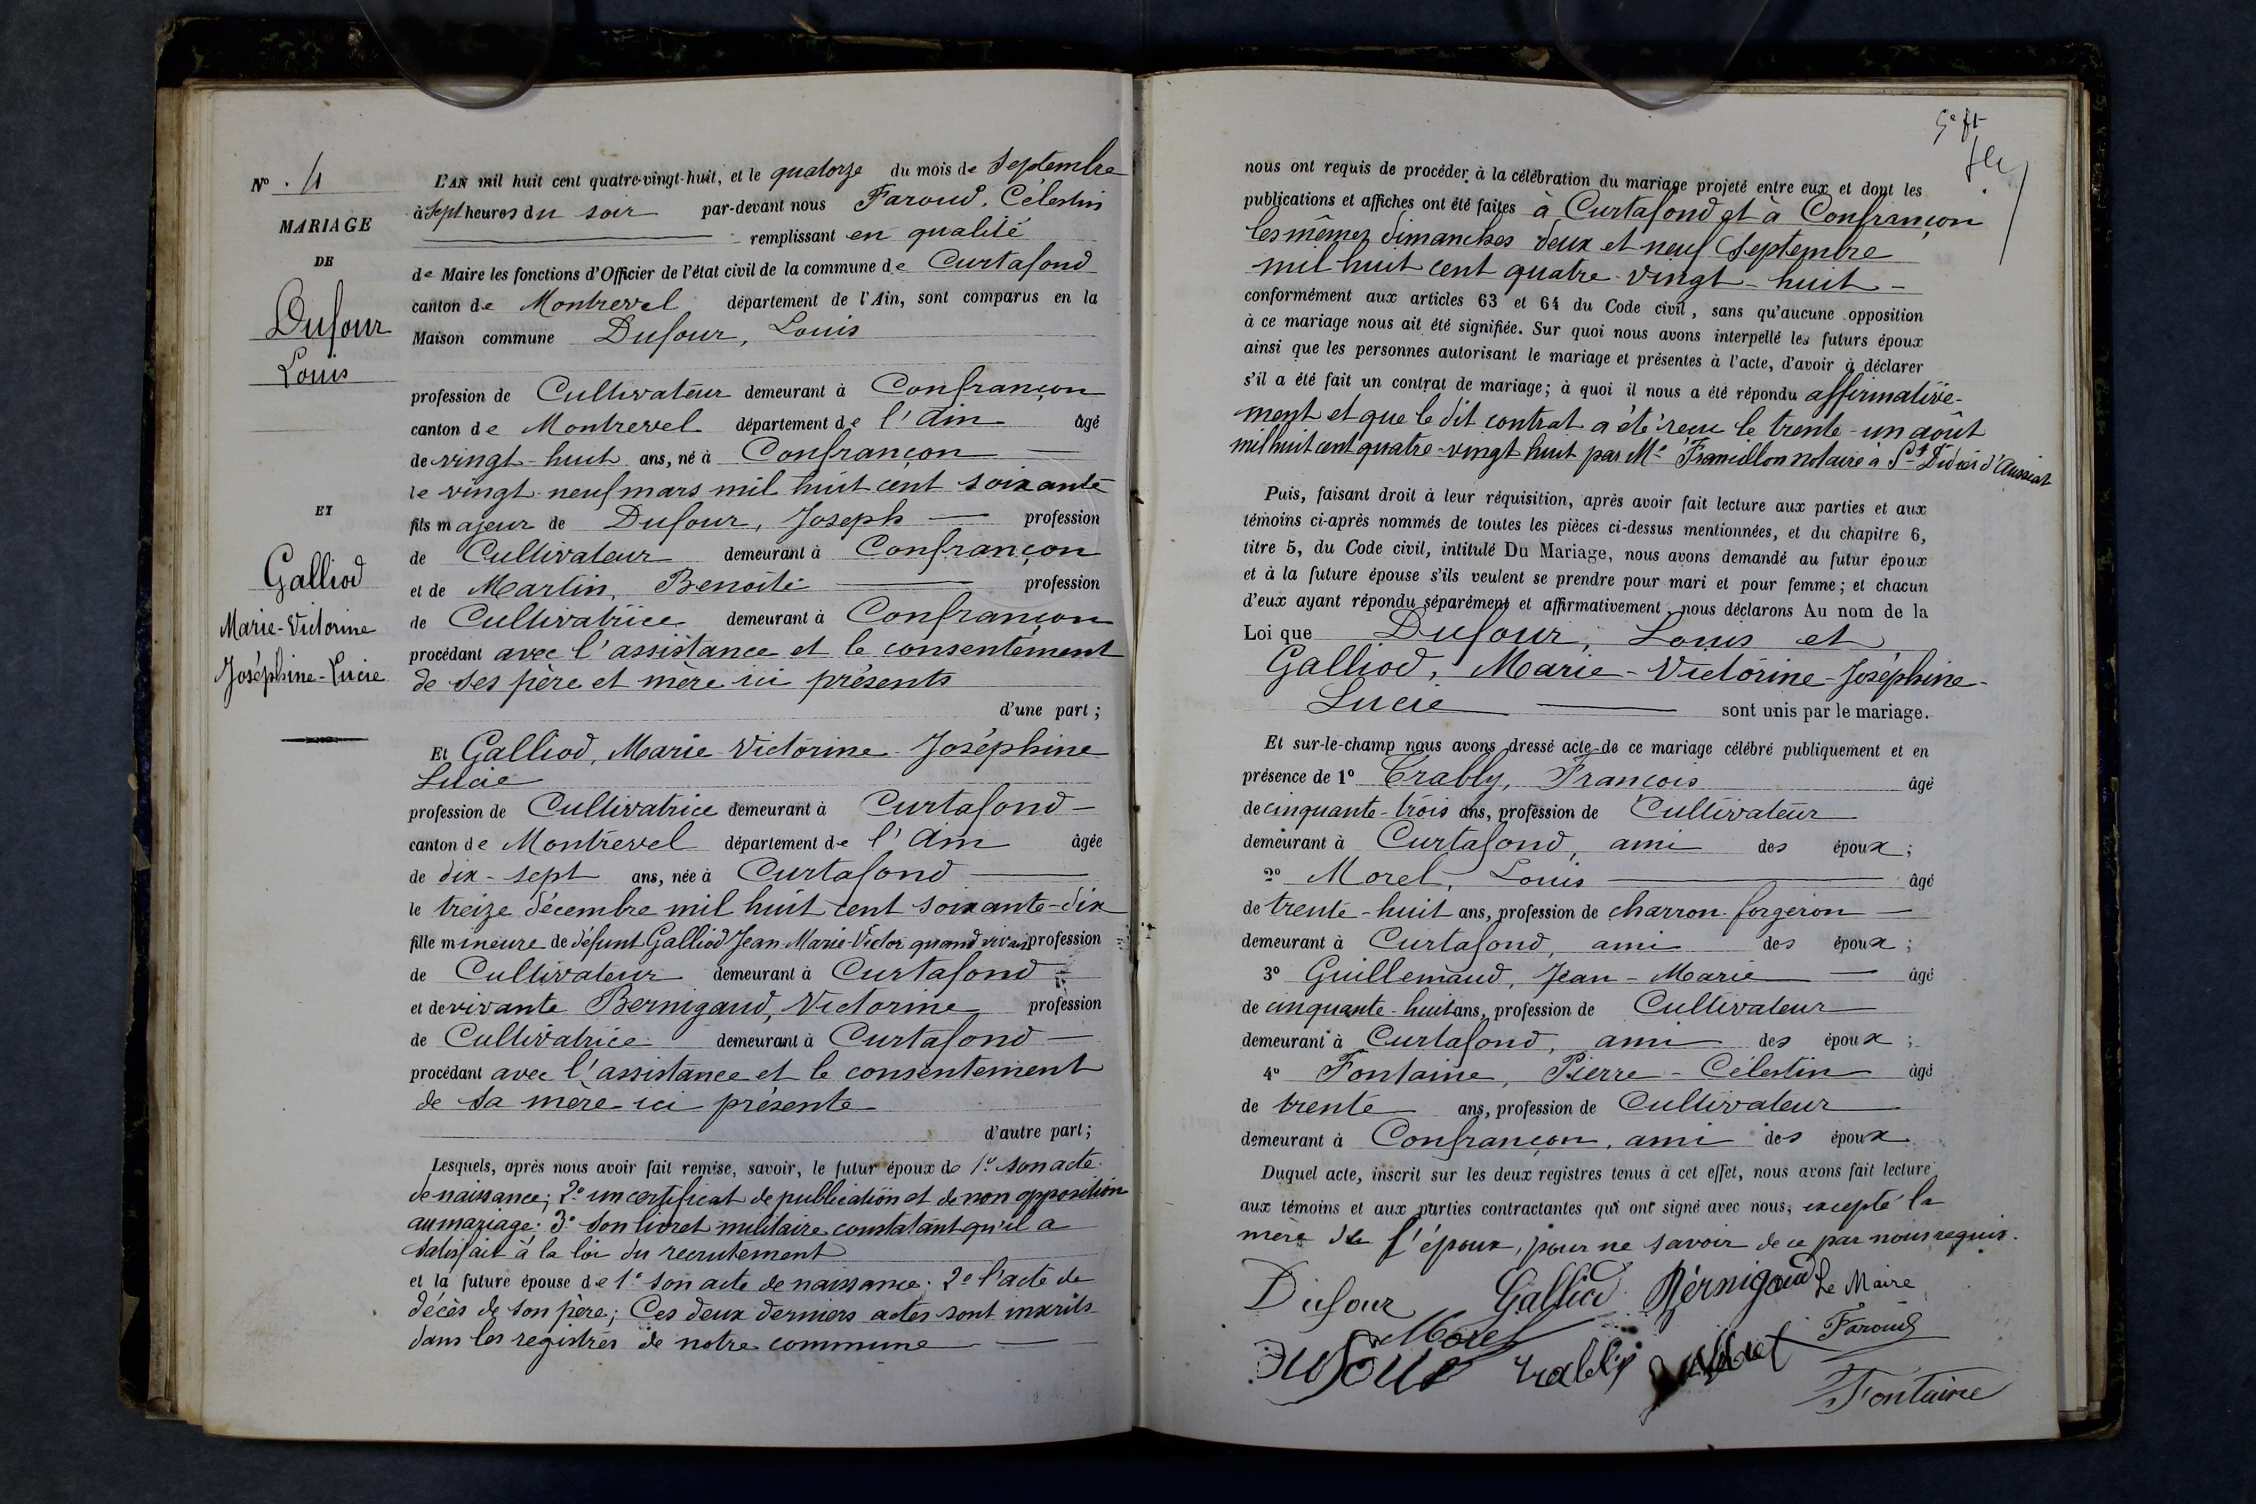 N° 4
MARIAGE
DE
Dufour
Louis
ET
Galliod
Marie-Victorine
Joséphine-Lucie
L'AN mil huit cent quatre-vingt-huit, et le quatorze du mois de Septembre
à Sept heures du soir par-devant nous Faroud, Célestin
remplissant en qualité
de Maire les fonctions d'Officier de l'état civil de la commune de Curtafond
canton de Montrevel département de l'Ain, sont comparus en la
Maison commune Dufour, Louis
profession de Cultivateur demeurant à Confrançon
canton de Montrevel département de l'Ain âgé
de vingt-huit ans, né à Confrançon
le vingt-neuf mars mil huit cent soixante
fils majeur de Dufour, Joseph profession
de Cultivateur demeurant à Confrançon
et de Martin, Benoîte profession
de Cultivatrice demeurant à Confrançon
procédant avec l'assistance et le consentement
de ses père et mère ici présents
d'une part ;
Et Galliod, Marie-Victorine-Joséphine
Lucie
profession de Cultivatrice demeurant à Curtafond
canton de Montrevel département de l'Ain âgée
de dix-sept ans, née à Curtafond
le treize décembre mil huit cent soixante-dix
fille mineure de défunt Galliod Jean-Marie-Victor quand vivait profession
de Cultivateur demeurant à Curtafond
et de vivante Bernigaud, Victorine profession
de Cultivatrice demeurant à Curtafond
procédant avec l'assistance et le consentement
de sa mère ici présente
d'autre part ;
Lesquels, après nous avoir fait remise, savoir, le futur époux de 1° son acte
de naissance ; 2° un certificat de publication et de non opposition
au mariage ; 3° son livret militaire constatant qu'il a
satisfait à la loi du recrutement
et la future épouse de 1° son acte de naissance ; 2° l'acte de
décès de son père ; Ces deux derniers actes sont inscrits
dans les registres de notre commune
nous ont requis de procéder à la célébration du mariage projeté entre eux et dont les
publications et affiches ont été faites à Curtafond et à Confrançon
les mêmes dimanches deux et neuf Septembre
mil huit cent quatre-vingt-huit
conformément aux articles 63 et 64 du Code civil, sans qu'aucune opposition
à ce mariage nous ait été signifiée. Sur quoi nous avons interpellé les futurs époux
ainsi que les personnes autorisant le mariage et présentes à l'acte, d'avoir à déclarer
s'il a été fait un contrat de mariage ; à quoi il nous a été répondu affirmative-
ment et que le dit contrat a été reçu le trente-un août
mil huit cent quatre-vingt huit par Me Francillon notaire à St Didier d'Aussiat
Puis, faisant droit à leur réquisition, après avoir fait lecture aux parties et aux
témoins ci-après nommés de toutes les pièces ci-dessus mentionnées, et du chapitre 6,
titre 5, du Code civil, intitulé Du Mariage, nous avons demandé au futur époux
et à la future épouse s'ils veulent se prendre pour mari et pour femme ; et chacun
d'eux ayant répondu séparément et affirmativement, nous déclarons Au nom de la
Loi que Dufour, Louis et
Galliod, Marie-Victorine-Joséphine-
Lucie sont unis par le mariage.
Et sur-le-champ nous avons dressé acte de ce mariage célébré publiquement et en
présence de 1° Trably, François âgé
de cinquante-trois ans, profession de Cultivateur
demeurant à Curtafond, ami des époux ;
2° Morel, Louis âgé
de trente-huit ans, profession de charron-forgeron
demeurant à Curtafond, ami des époux ;
3° Guillemaud, Jean-Marie âgé
de cinquante-huit ans, profession de Cultivateur
demeurant à Curtafond, ami des époux ;
4° Fontaine, Pierre-Célestin âgé
de trente ans, profession de Cultivateur
demeurant à Confrançon, ami des époux
Duquel acte, inscrit sur les deux registres tenus à cet effet, nous avons fait lecture
aux témoins et aux parties contractantes qui ont signé avec nous, excepté la
mère de l'époux, pour ne savoir de ce par nous requis.
Dufour Galliod Bernigaud Le Maire
Morel Faroud
Dufour Trably
Fontaine